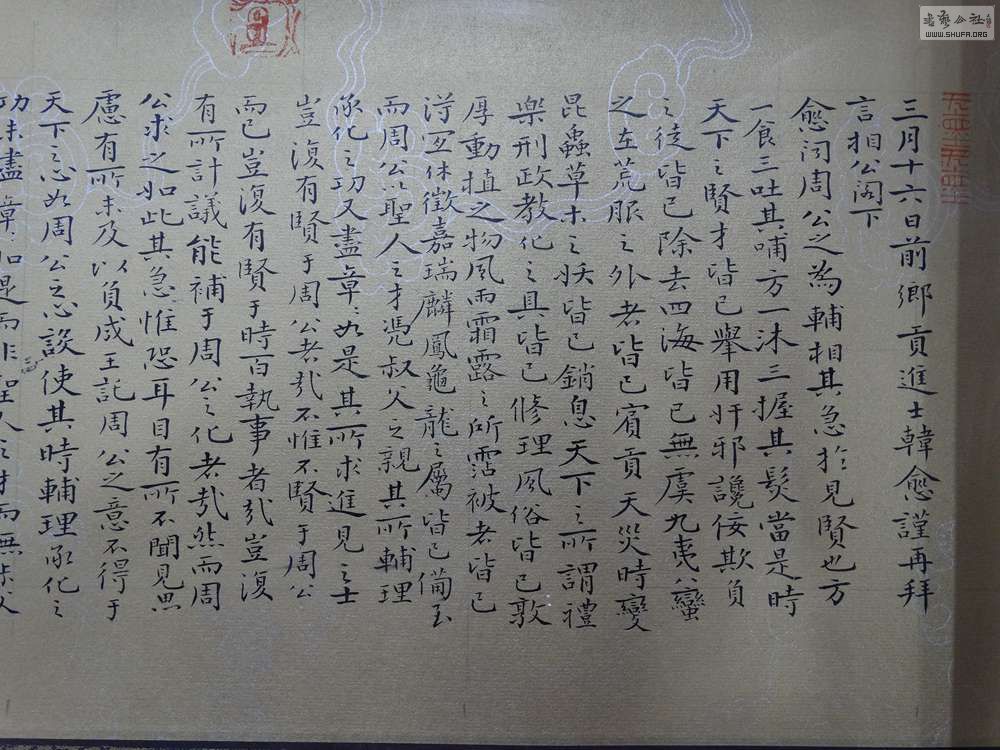 三月十六日前鄉貢進士韓愈謹再拜
言相公閣下
愈闻周公之為輔相其急於見賢也方
一食三吐其哺方一沐三握其髮當是時
天下之賢才皆已舉用奸邪讒佞欺負
之徒皆已除去四海皆已無虞九夷八蠻
之在荒服之外者皆已賓貢天災時變
昆蟲草木之妖皆已銷息天下之所謂禮
樂刑政教化之具皆已修理風俗皆已敦
厚動植之物風雨霜露之所霑被者皆已
得宜休徵嘉瑞麟鳳龜龍之屬皆已備至
而周公以聖人之才憑叔父之親其所輔理
承化之功又盡章:如是其所求進見之士
豈復有賢于周公者哉不惟不賢于周公
而已豈復有賢于時百執事者哉豈復
有所計議能補于周公之化者哉然而周
公求之如此其急惟恐耳目有所不聞見思
慮有所未及以負成王託周公之意不得于
天下之心如周公之心設使其時輔理承化之
功未盡章:如是而非聖人之才而無叔父
書藝公社
WWW.SHUFA.ORG